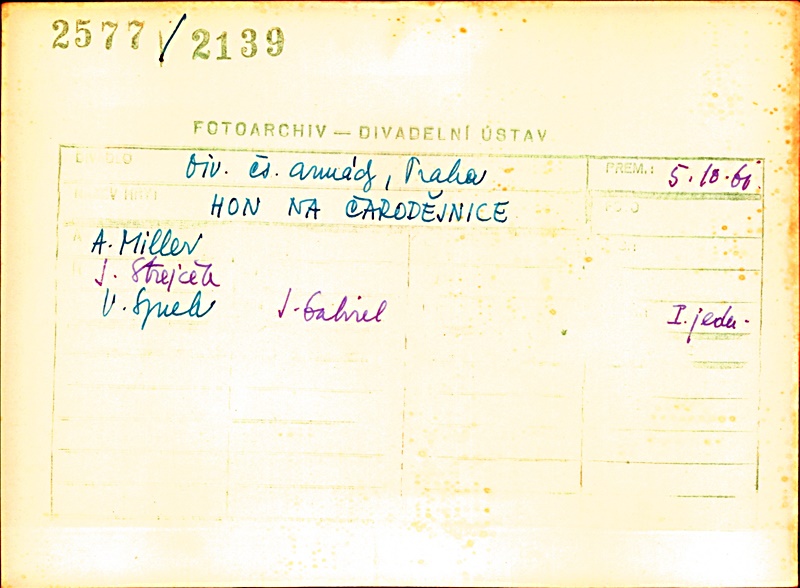 2577/2139
FOTOARCHIV — DIVADELNÍ ÚSTAV
DIVADLO Div. čs. armády, Praha PREM.: 5.10.60.
NÁZEV HRY: HON NA ČARODĚJNICE FOTO
A. Miller
J. Strejček
V. Špidla J. Gabriel I. jedn.